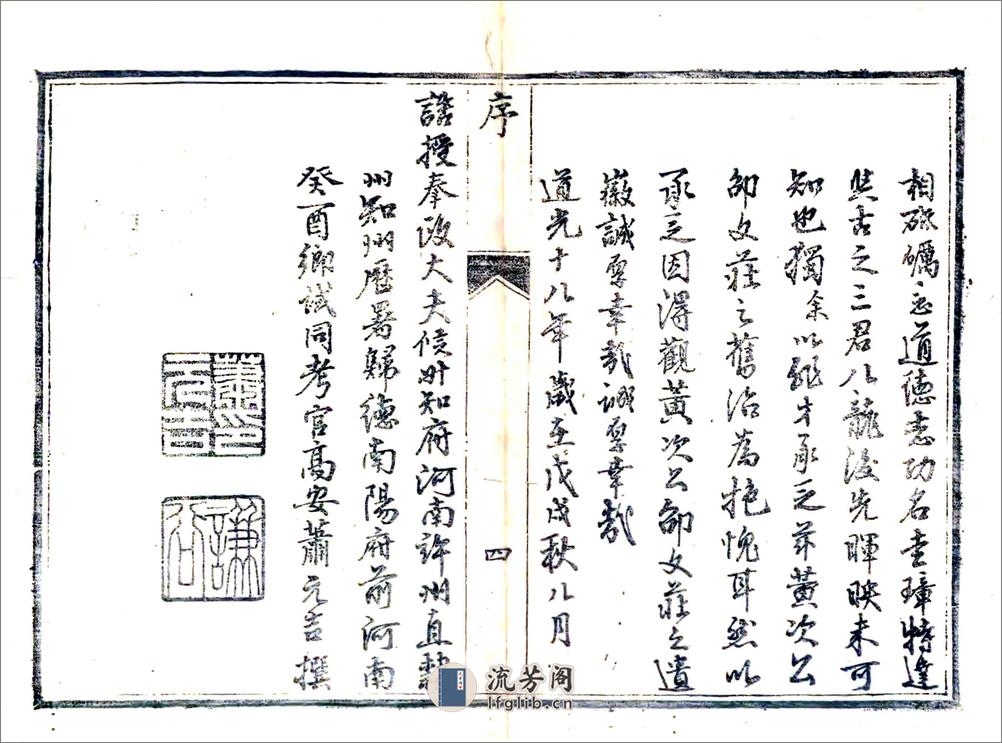 相砥礪之道德志功名圭璋特達
與古之三君八龍後先暉映未可
知也獨余以駑才承乏茲黃次公
邵文莊之舊治為抱愧耳然以
承乏因得觀黃次公邵文莊之遺
徽誠厚幸哉誠厚幸哉
道光十八年歲在戊戌秋八月
誥授奉政大夫候升知府河南許州直隸
州知州歷署歸德南陽府前河南
癸酉鄉試同考官高安蕭元吉撰
序
四
蕭元吉印
謙谷
流芳阁
lfglib.cn